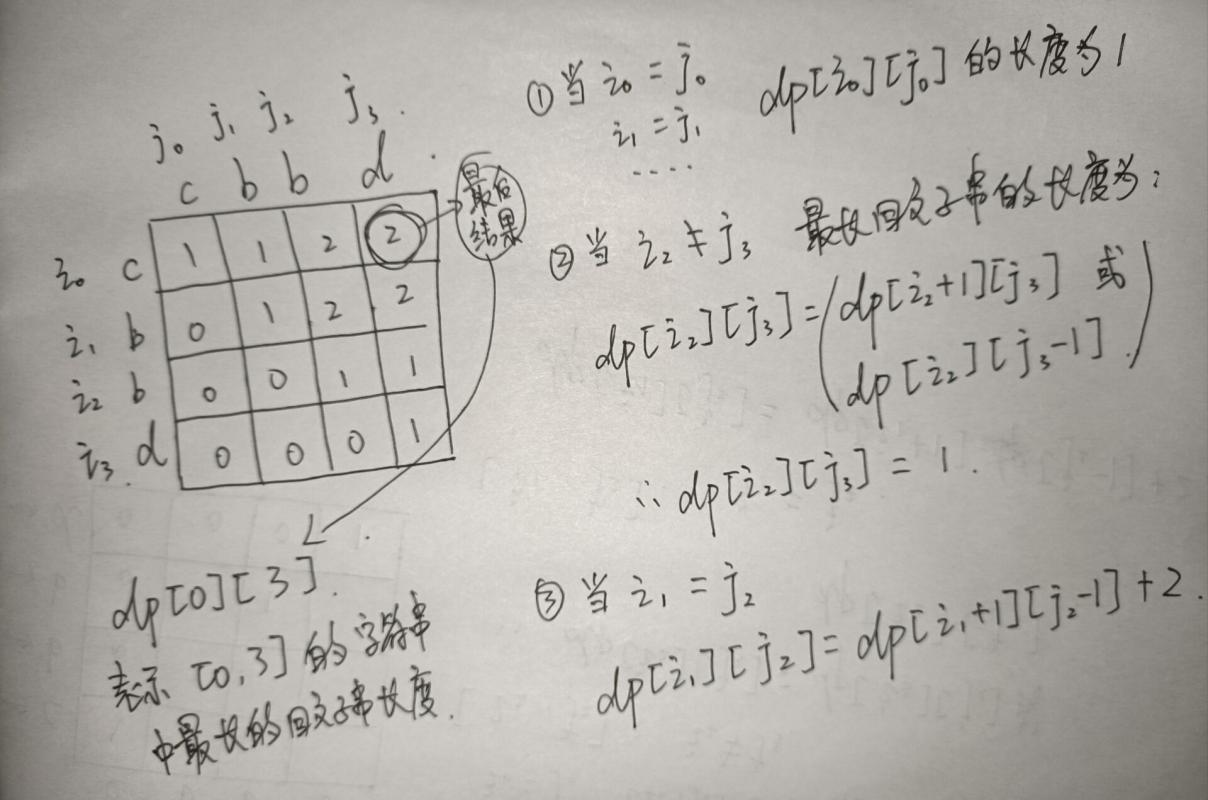 j₀ j₁ j₂ j₃
c b b d
i₀ c 1 1 2 2
i₁ b 0 1 2 2
i₂ b 0 0 1 1
i₃ d 0 0 0 1
最后
结果
dp[0][3].
表示 [0,3] 的字符串
中最长的回文子串长度.
①当 i₀ = j₀ dp[i₀][j₀] 的长度为1
i₁ = j₁
....
②当 i₂ ≠ j₃ 最长回文子串的长度为:
dp[i₂][j₃] = (dp[i₂+1][j₃] 或
dp[i₂][j₃-1].)
∴ dp[i₂][j₃] = 1.
③当 i₁ = j₂
dp[i₁][j₂] = dp[i₁+1][j₂-1] + 2.